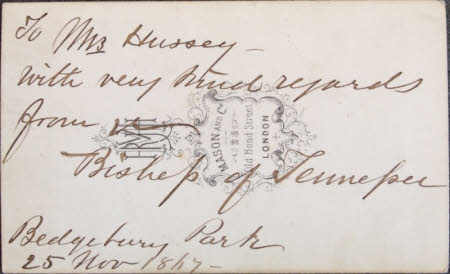 To Mrs Hussey -
with very kind regards
from
Bishop of Tennessee
Bedgebury Park
25 Nov 1867 -
MASON AND Co
28
Old Bond Street
LONDON